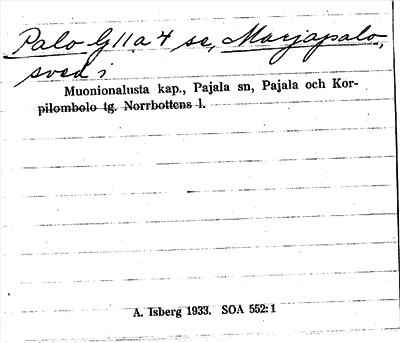 Palo Gll a 4 se, Marjapalo,
sved i
Muonionalusta kap., Pajala sn, Pajala och Kor-
pilombolo tg. Norrbottens l.
A. Isberg 1933. SOA 552:1